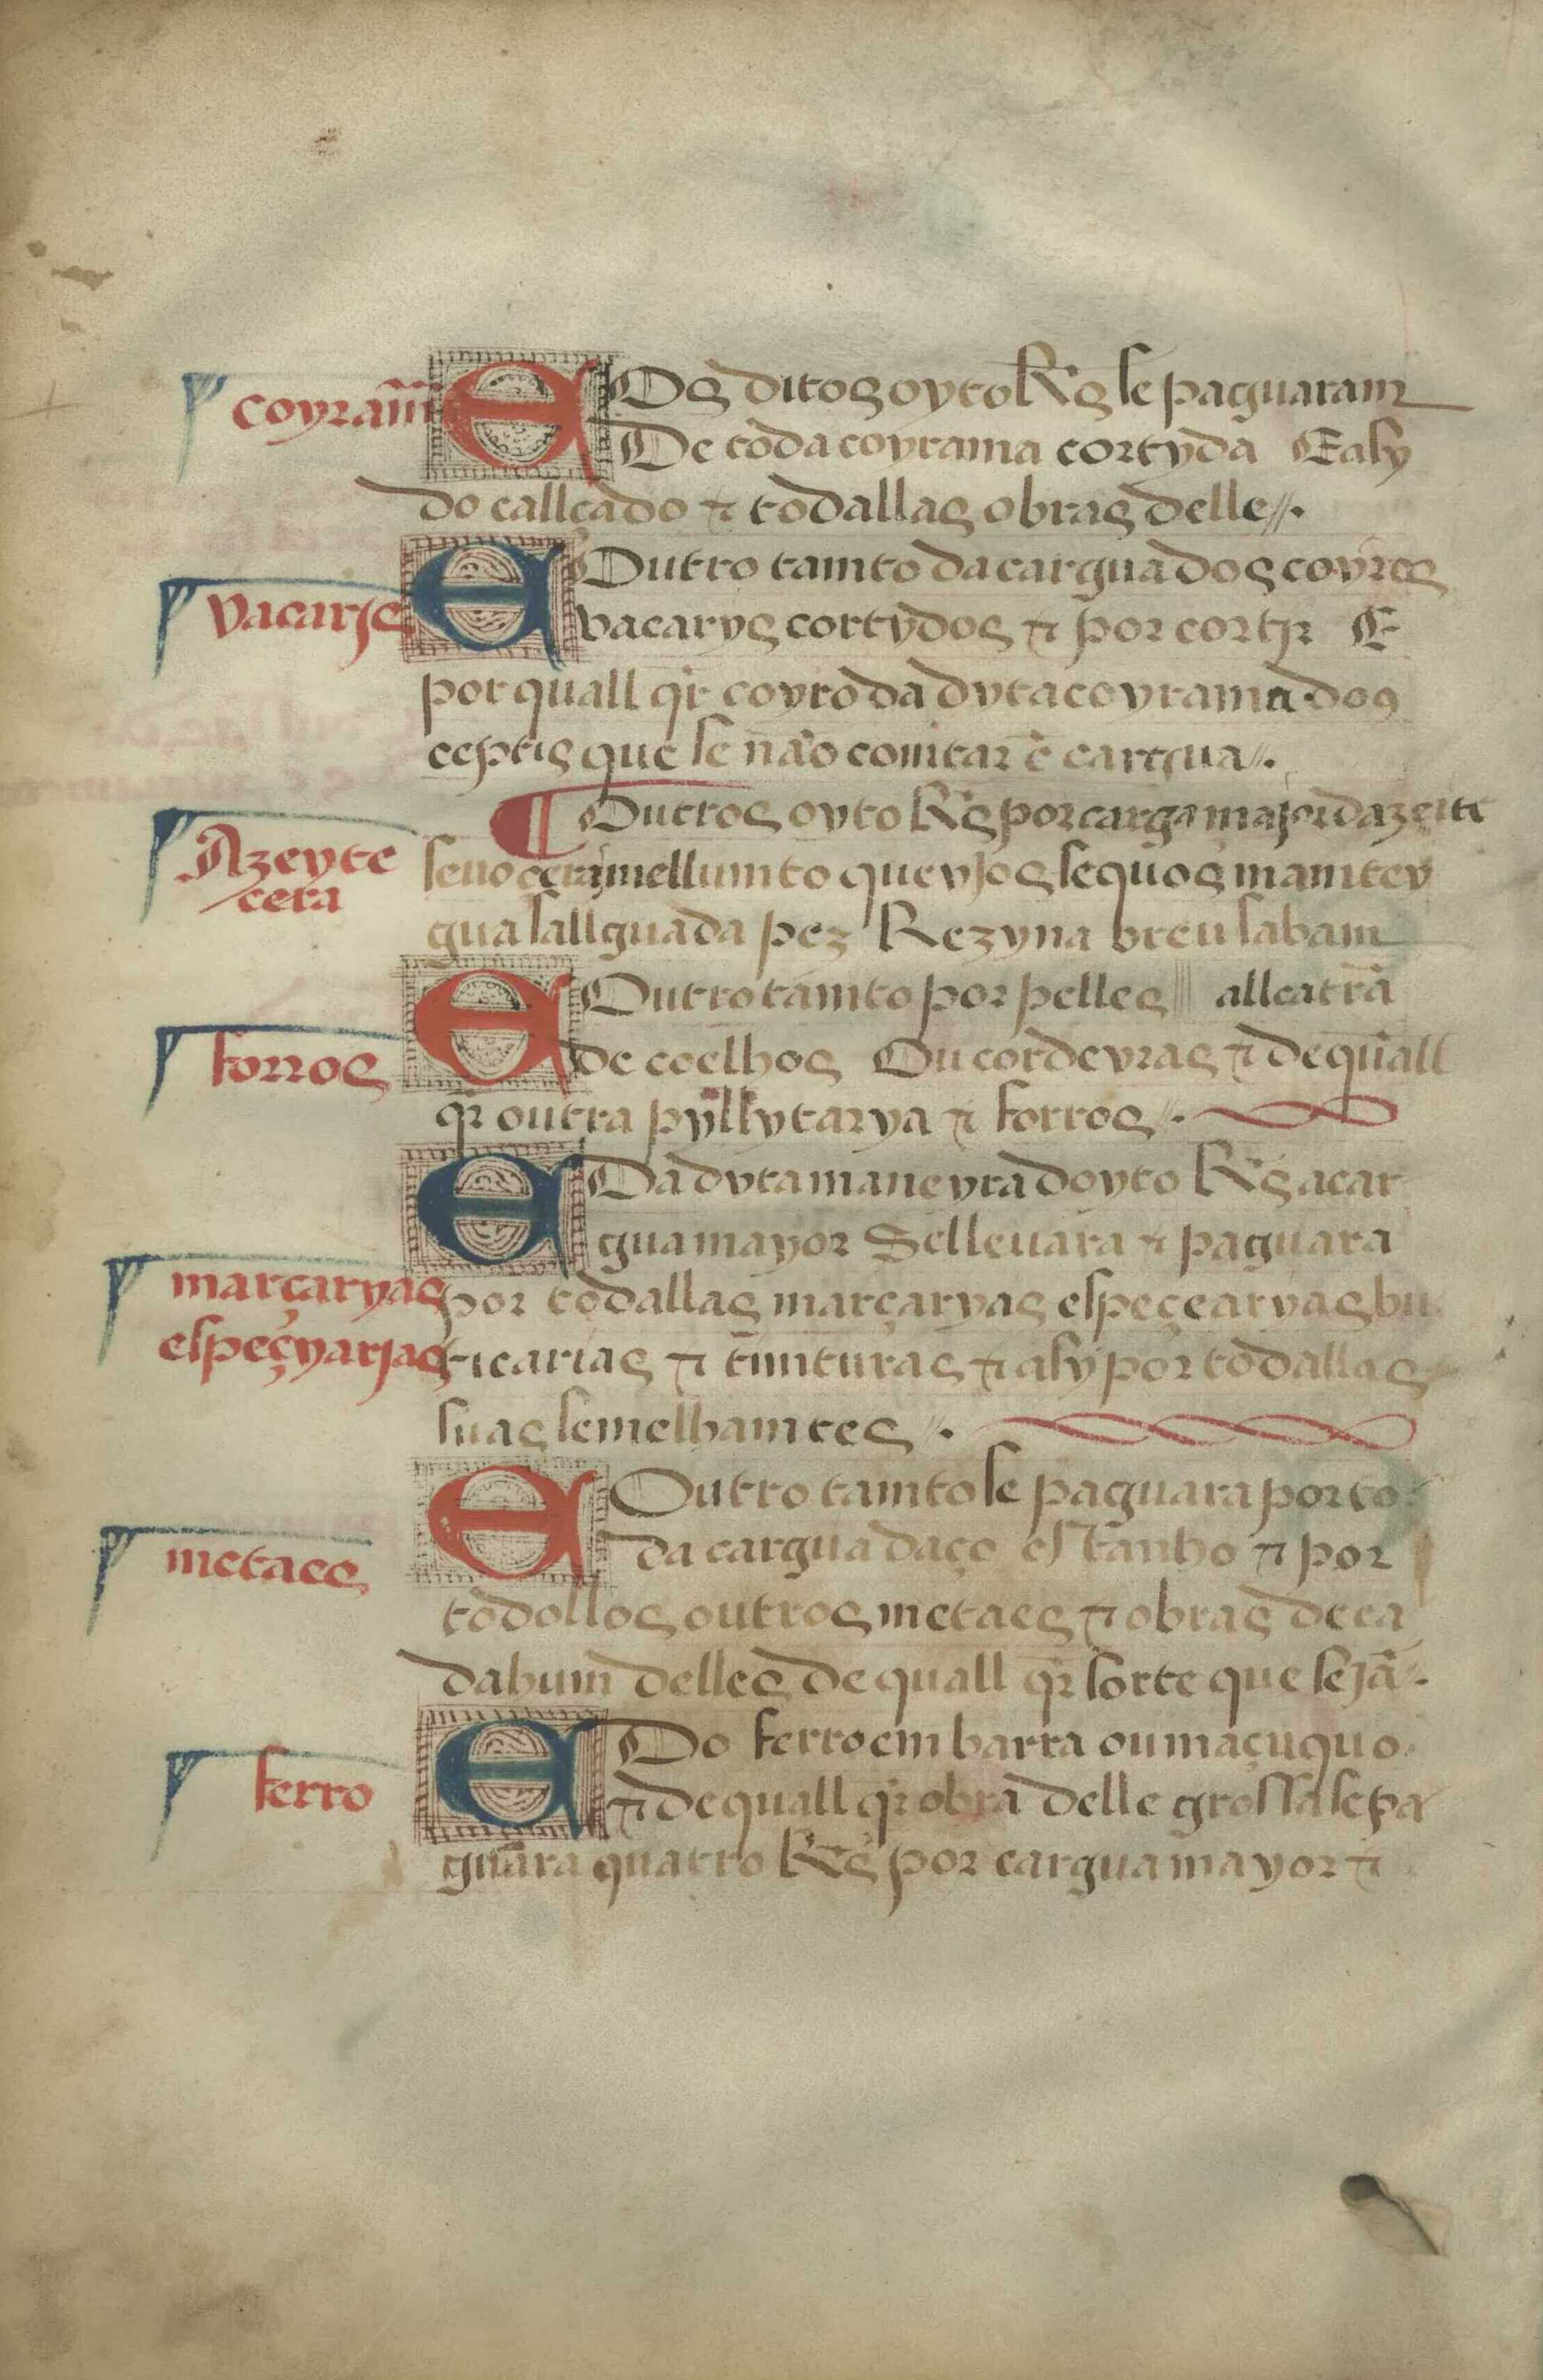 coyram̃ E Os ditos oyto Rs̃ se paguaram
De toda coyrama cortyda E asy
do callçado ⁊ todallas obras delle //.
vacarjs E Outro tamto da cargua dos coyros
vacarys cortydos ⁊ por cortjr E
por quall qr̃ coyro da dyta coyrama dos
ceptis que se não comtar ẽ cargua //.
¶ Outros oyto Rs̃ por carga major dazeite
Azeyte seuo çera mell umto queyjos sequos mamtey
cera
gua sallguada pez Rezyna breu sabam
E Outro tamto por pelles || allcatrã
forros de coelhos Ou cordeyras ⁊ de quall
qr̃ outra pyllytarya ⁊ forros //.
E Da dyta maneyra doyto Rs̃ a car
gua mayor Se lleuara ⁊ paguara
marçaryas por todallas marçaryas espeçearyas bu
espeçyarjas ticarias ⁊ timturas ⁊ asy por todallas
suas semelhamtes //.
E Outro tamto se paguara por to
metaes da cargua daço estanho ⁊ por
todollos outros metaes ⁊ obras de ca
dahum delles de quall qr̃ sorte que sejã //.
ferro E Do ferro em barra ou maçuquo
⁊ de quall qr̃ obra delle grossa se pa
guara quatro Rs̃ por cargua mayor ⁊